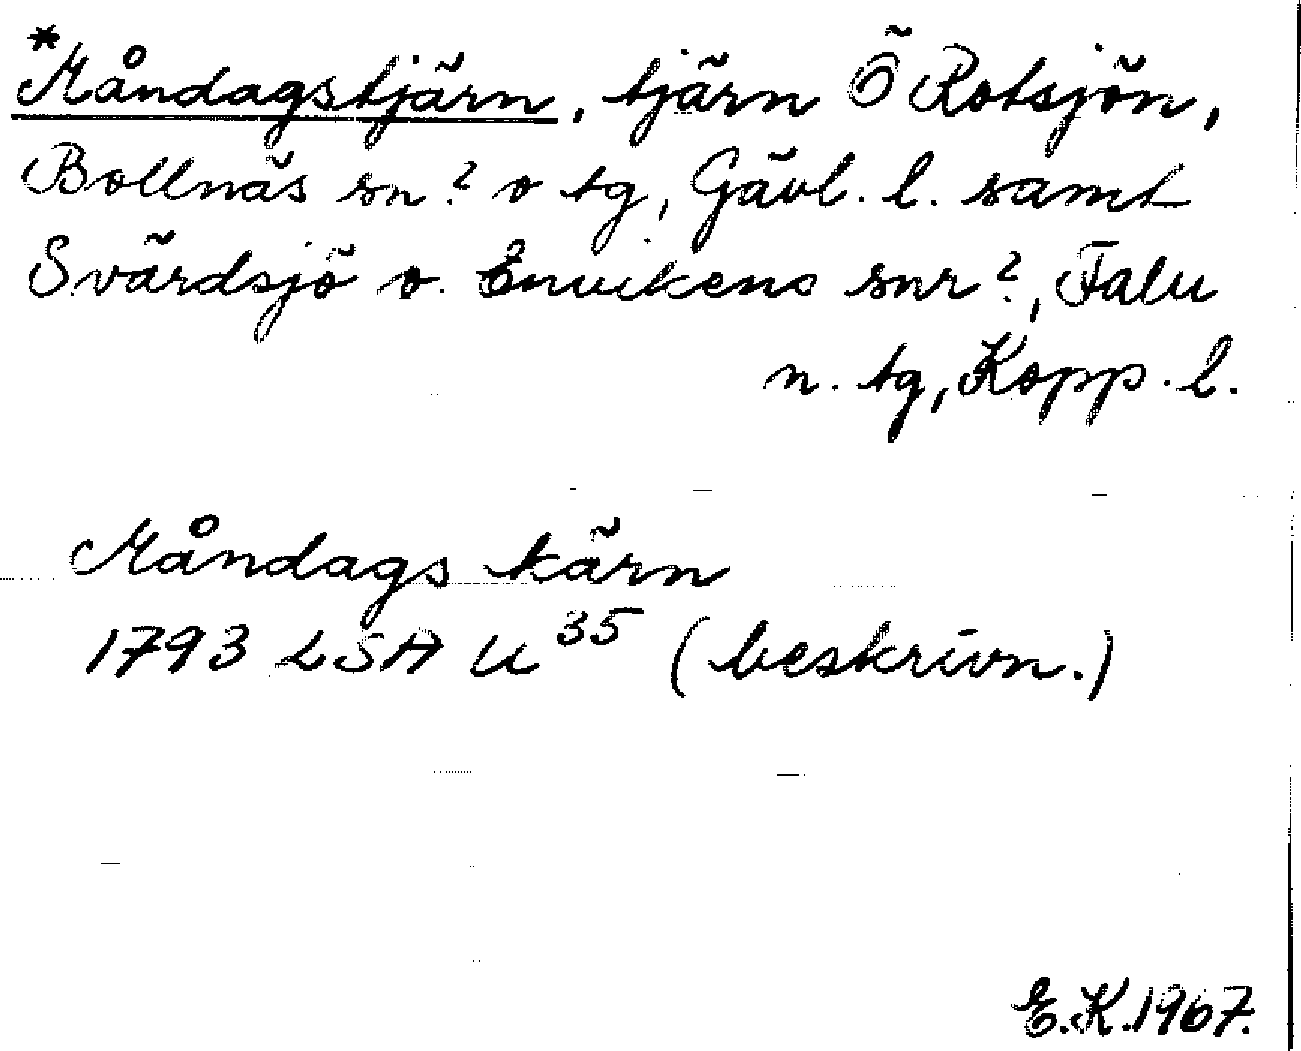 *Måndagstjärn, tjärn Ö Rotsjön,
Bollnäs sn? o tg, Gävl. l. samt
Svärdsjö o. Envikens snr?, Falu
n. tg, Kopp. l.
Måndags kärn
1793 LSA U 35 (beskrivn.)
E.K. 1967.